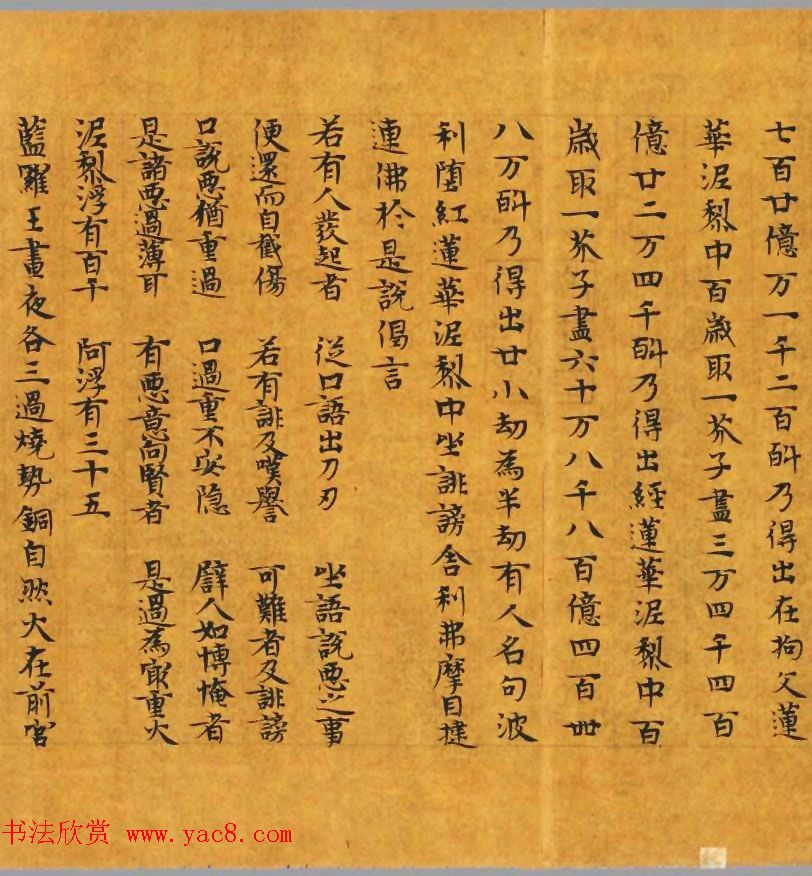 七百廿億万一千二百斛乃得出在拘文蓮
華泥梨中百歲取一芥子盡三万四千四百
億廿二万四千斛乃得出經蓮華泥梨中百
歲取一芥子盡六十万八千八百億四百卌
八万斛乃得出廿小劫為半劫有人名句波
利墮紅蓮華泥梨中坐誹謗舍利弗摩目揵
連佛於是說偈言
若有人發起者 從口語出刀刃 坐語說惡之事
便還而自截傷 若有誹及嘆譽 可難者及誹謗
口說惡猶重過 口過重不安隱 譬人如博掩者
是諸惡過薄耳 有惡意向賢者 是過為最重大
泥梨浮有百千 阿浮有三十五
藍羅王晝夜各三過燒熱銅自然火在前宮
书法欣赏 www.yac8.com